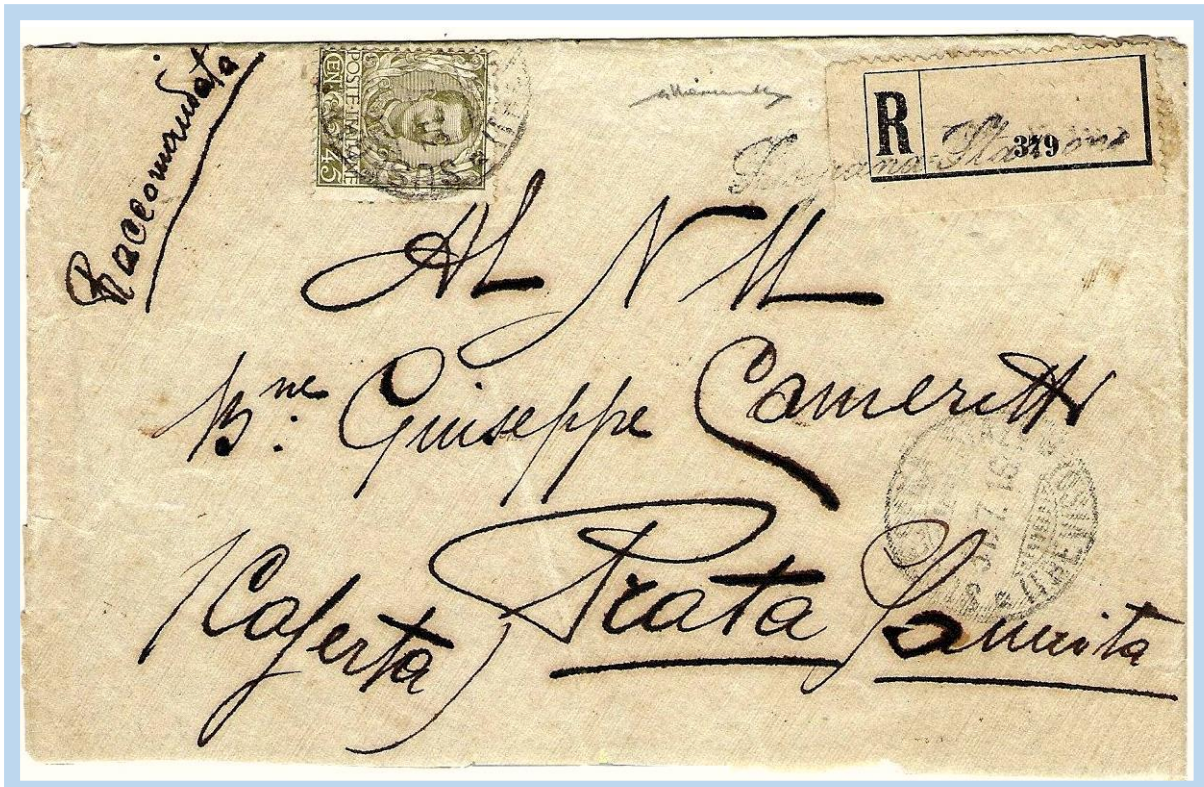 Raccomandata
POSTE ITALIANE
CENT. 45
R
379
Al N H
B.ne Giuseppe Cameretti
(Caserta) Prata Sannita